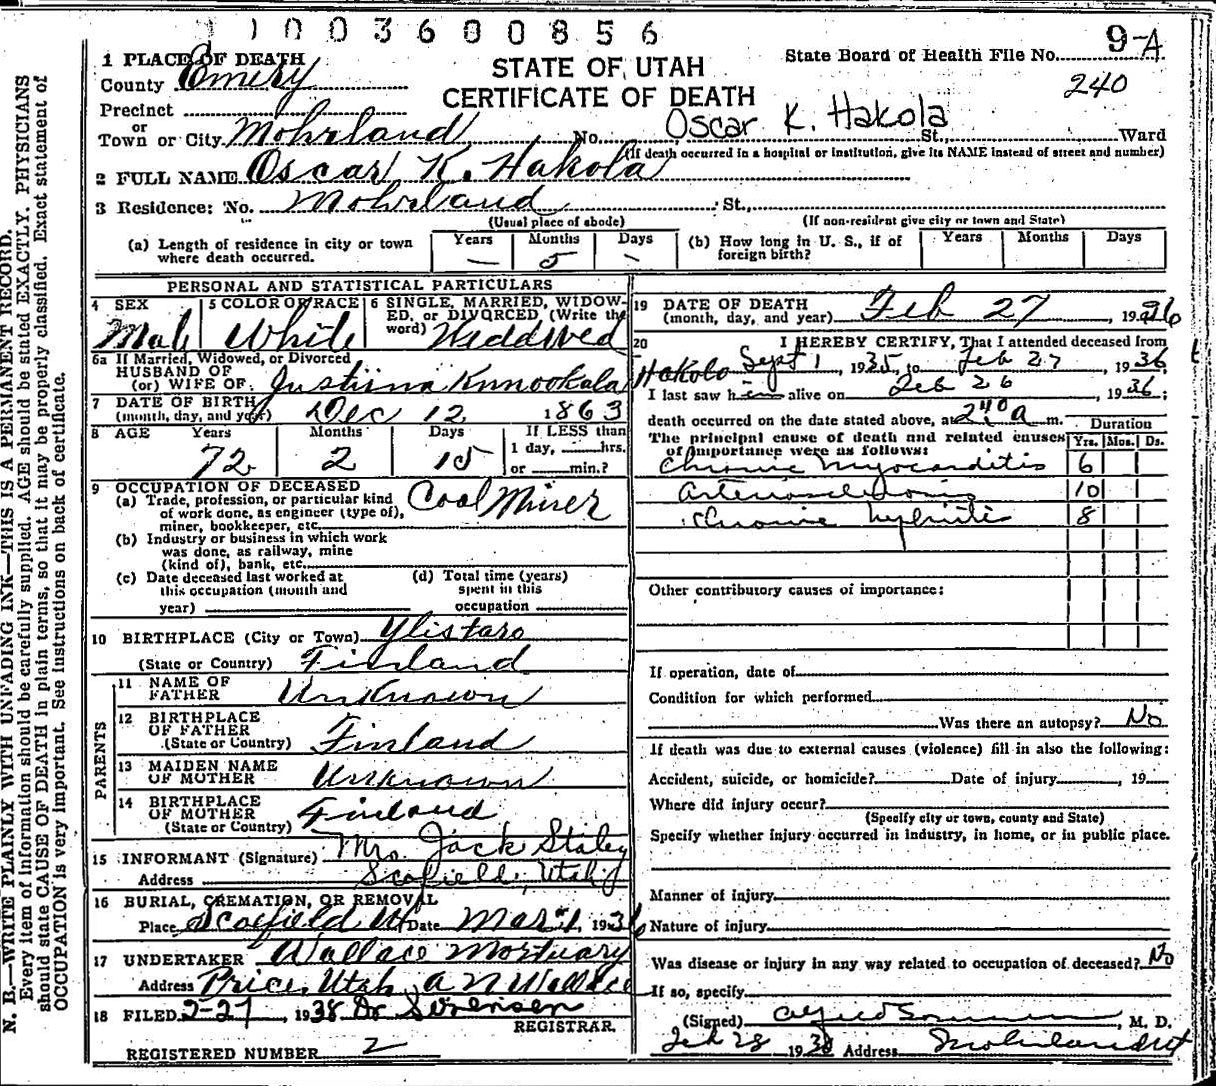 1003600856
1 PLACE OF DEATH
County Emery
STATE OF UTAH
State Board of Health File No. 9-A
240
Precinct
CERTIFICATE OF DEATH
or
Town or City Mohrland No. Oscar K. Hakola St., Ward
(If death occurred in a hospital or institution, give its NAME instead of street and number)
2 FULL NAME Oscar K. Hakola
3 Residence: No. Mohrland St.,
(Usual place of abode) (If non-resident give city or town and State)
(a) Length of residence in city or town where death occurred. Years — Months 5 Days -
(b) How long in U. S., if of foreign birth? Years Months Days
PERSONAL AND STATISTICAL PARTICULARS
4 SEX Male
5 COLOR OR RACE White
6 SINGLE, MARRIED, WIDOW-
ED, or DIVORCED (Write the
word) Widdwed
6a If Married, Widowed, or Divorced
HUSBAND OF
(or) WIFE OF Justiina Hakolo
7 DATE OF BIRTH
(month, day, and year) Dec 12 1863
8 AGE Years 72 Months 2 Days 15
If LESS than
1 day, hrs.
or min.?
9 OCCUPATION OF DECEASED
(a) Trade, profession, or particular kind
of work done, as engineer (type of),
miner, bookkeeper, etc. Coal Miner
(b) Industry or business in which work
was done, as railway, mine
(kind of), bank, etc.
(c) Date deceased last worked at
this occupation (month and
year)
(d) Total time (years)
spent in this
occupation
10 BIRTHPLACE (City or Town) Ylistaro
(State or Country) Finland
PARENTS
11 NAME OF
FATHER Unknown
12 BIRTHPLACE
OF FATHER
(State or Country) Finland
13 MAIDEN NAME
OF MOTHER Unknown
14 BIRTHPLACE
OF MOTHER
(State or Country) Finland
15 INFORMANT (Signature) Mrs. Jack Staley
Address Scofield, Utah
16 BURIAL, CREMATION, OR REMOVAL
Place Scofield Ut Date Mar 1, 1936
17 UNDERTAKER Wallace Mortuary
Address Price, Utah A N Wallace
18 FILED 2-27, 1938 Dr Sorensen
REGISTRAR.
REGISTERED NUMBER 2
19 DATE OF DEATH
(month, day, and year) Feb 27 1936
20 I HEREBY CERTIFY, That I attended deceased from
Sept 1 1935, to Feb 27, 1936
I last saw him alive on Feb 26, 1936;
death occurred on the date stated above, at 2:40 a m.
The principal cause of death and related causes
of importance were as follows: Duration
Yrs. Mos. Ds.
Chronic Myocarditis 6
Arteriosclerosis 10
Chronic nephritis 8
Other contributory causes of importance:
If operation, date of
Condition for which performed
Was there an autopsy? No
If death was due to external causes (violence) fill in also the following:
Accident, suicide, or homicide? Date of injury , 19
Where did injury occur?
(Specify city or town, county and State)
Specify whether injury occurred in industry, in home, or in public place.
Manner of injury
Nature of injury
Was disease or injury in any way related to occupation of deceased? No
If so, specify
(Signed) , M. D.
Feb 28 1938 Address Mohrland Ut
N. B.—WRITE PLAINLY WITH UNFADING INK—THIS IS A PERMANENT RECORD.
Every item of information should be carefully supplied. AGE should be stated EXACTLY. PHYSICIANS
should state CAUSE OF DEATH in plain terms, so that it may be properly classified. Exact statement of
OCCUPATION is very important. See instructions on back of certificate.